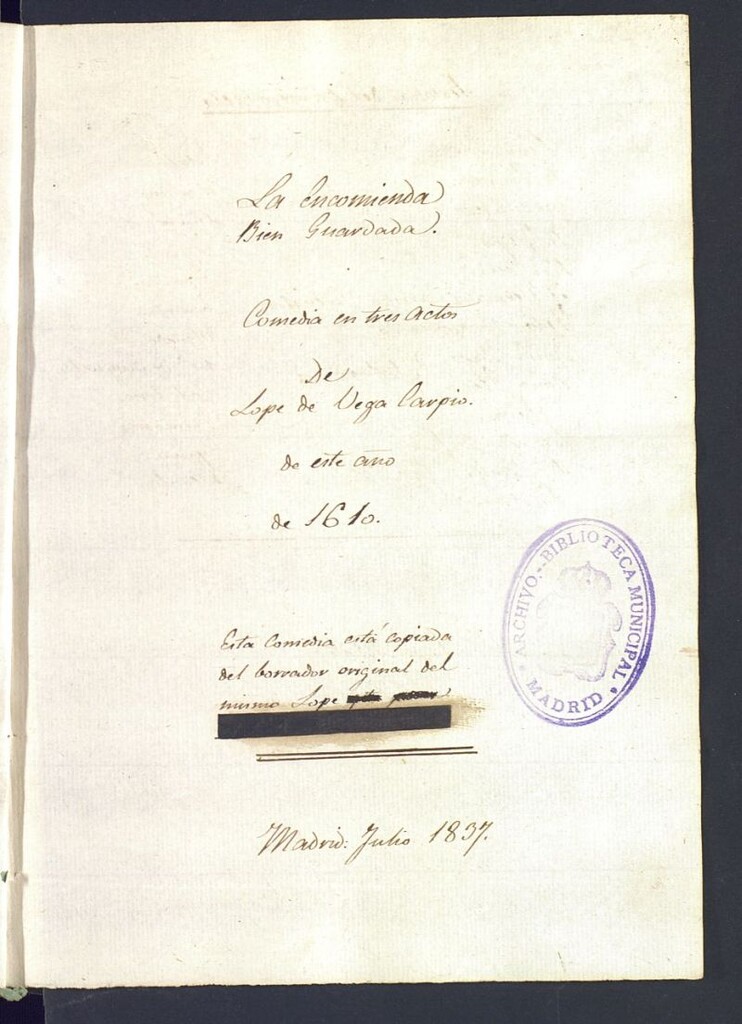 La Encomienda
Bien Guardada.
Comedia en tres actos
De
Lope de Vega Carpio.
de este año
de 1610.
Esta Comedia está copiada
del borrador original del
mismo Lope
Madrid: Julio 1837.
ARCHIVO.-BIBLIOTECA MUNICIPAL
MADRID